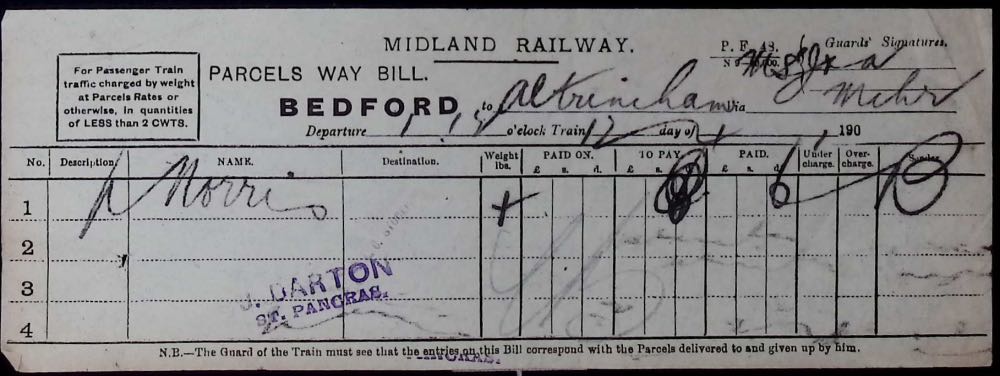 MIDLAND RAILWAY.
P. F. A8.
Guards' Signatures.
For Passenger Train
traffic charged by weight
at Parcels Rates or
otherwise, in quantities
of LESS than 2 CWTS.
PARCELS WAY BILL.
BEDFORD to Altrincham via
Departure o'clock Train 12 day of 190
No. Description NAME. Destination. Weight lbs. PAID ON. £ s. d. TO PAY £ s. d. PAID. £ s. d. Under charge. Over-charge. Sender
1 p Norris 6 B
2
3
4
J. DARTON
ST. PANCRAS.
N.B.—The Guard of the Train must see that the entries on this Bill correspond with the Parcels delivered to and given up by him.